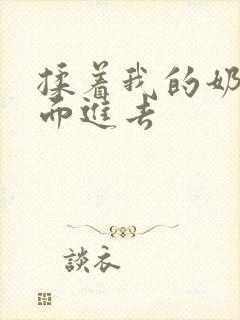 揉着我的奶
而進去
談衣